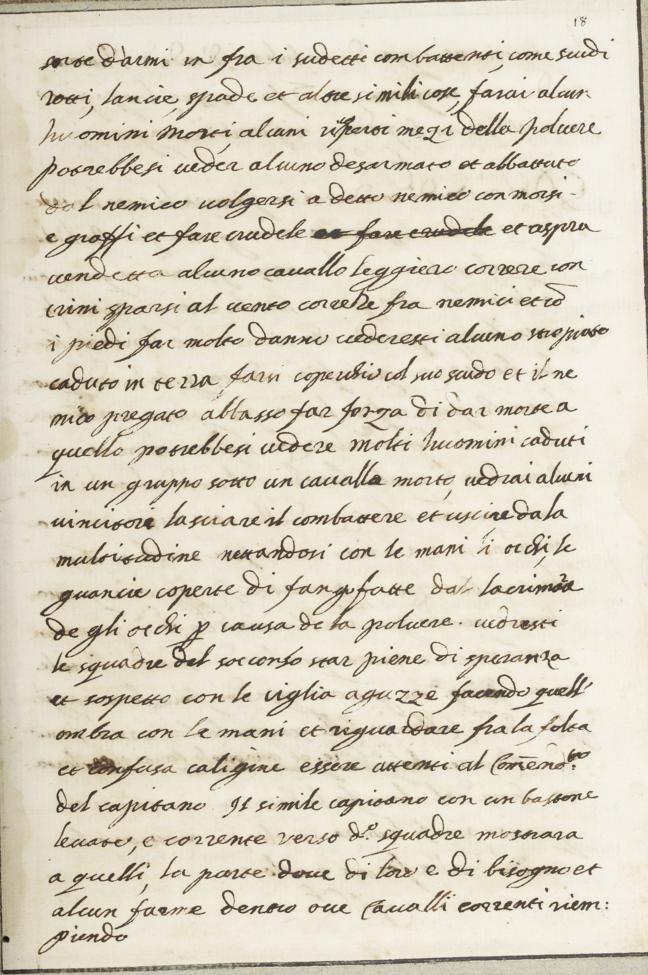 18
sorte d'armi in fra i sudetti combattenti, come scudi
rotti, lancie, spade et altre simili cose, farai alcun
huomini morti, alcuni ripersi mezi della polvere
potrebbesi veder alcuno desarmato et abbattuto
dal nemico volgersi a detto nemico con morsi
e graffi et fare crudele et fare crudele et aspra
vendetta alcuno cavallo leggiero correre con
crini sparsi al vento correre fra nemici et cō
i piedi far molto danno vederesti alcuno stropiato
caduto in terra, farsi coperchio col suo scudo et il ne
mico pregato abbasso far forza di dar morte a
quello potrebbesi vedere molti huomini caduti
in un gruppo sotto un cavallo morto, vedrai alcuni
vincitori lasciare il combattere et uscire da la
multitudine nettandosi con le mani li occhi, le
guancie coperte di fango fatte dal lacrimar
de gli occhi p causa de la polvere. vedresti
le squadre del soccorso star piene di speranza
et sospetto con le ciglia aguzze facendo quell'
ombra con le mani et riguardare fra la folta
et confusa caligine essere attenti al Comēno.to
del capitano Il simile capitano con un bastone
levato, e corrente verso d.e squadre mostrara
a quelli, la parte dove di loro e di bisogno et
alcun farme dentro ove Cavalli correnti riem:
piendo